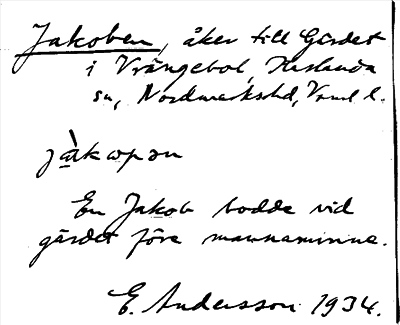 Jakoben, åker till Gärdet
i Vrångebol, Huslanda
sn, Nordmarkshd, Vrml l.
jàkωpən
En Jakob bodde vid
gärdet före mannaminne.
E. Andersson 1934.